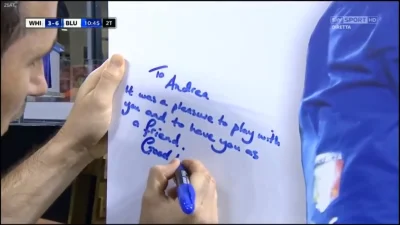 WHI 3-6 BLU 10:45 2T
sky SPORT HD
DIRETTA
To Andrea
it was a pleasure to play with
you and to have you as
a friend.
Good